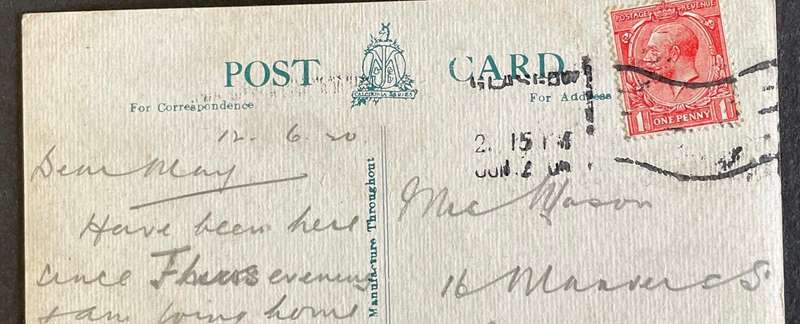 POST CARD
CALEDONIA SERIES
For Correspondence
For Address
POSTAGE REVENUE
1 ONE PENNY 1
GLASGOW
2. 15 PM
JUN 2
12. 6. 20
Dear May
Have been here
since Thurs evening
& am going home
Manufacture Throughout
Mrs Mason
16